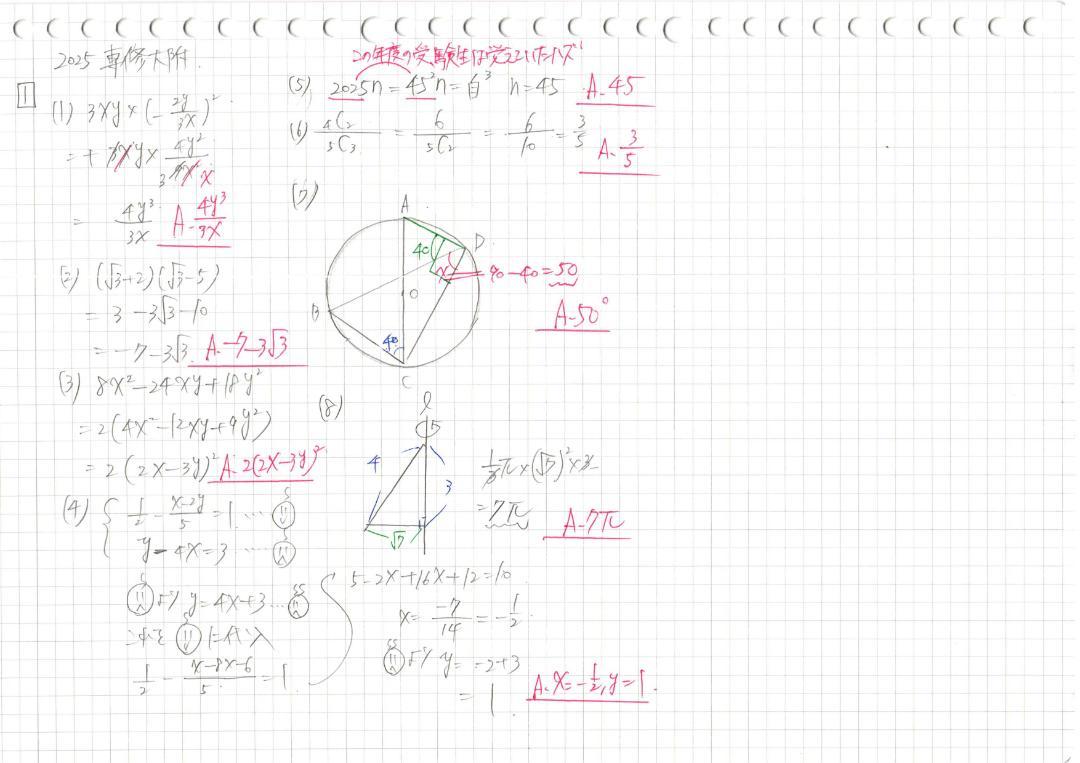 2025 専修大附.
1
(1) 3xy×(-2y/3x)²
=+3xy×4y²/9x²
= 4y³/3x A-4y³/3x
(2) (√3+2)(√3-5)
= 3-3√3-10
= -7-3√3 A-7-3√3
(3) 8x²-24xy+18y²
=2(4x²-12xy+9y²)
=2(2x-3y)² A-2(2x-3y)²
(4) 1/2-(x-2y)/5=1 …
y-4x=3 …
より y=4x+3…
これを に代入
1/2-(x-8x-6)/5=1
5-2x+16x+12=10
x=-7/14=-1/2
より y= -2+3
=1. A-x=-1/2, y=1.
この年度の受験生は覚えていたハズ
(5) 2025n=45²n=自³ n=45 A-45
(6) 4C2/5C3 = 6/5C2 = 6/10 = 3/5 A-3/5
(7)
A
D
40
x
90-40=50
A-50°
O
B
40
C
(8)
l
4
3
√7
1/3π×(√7)²×3
=7π A-7π